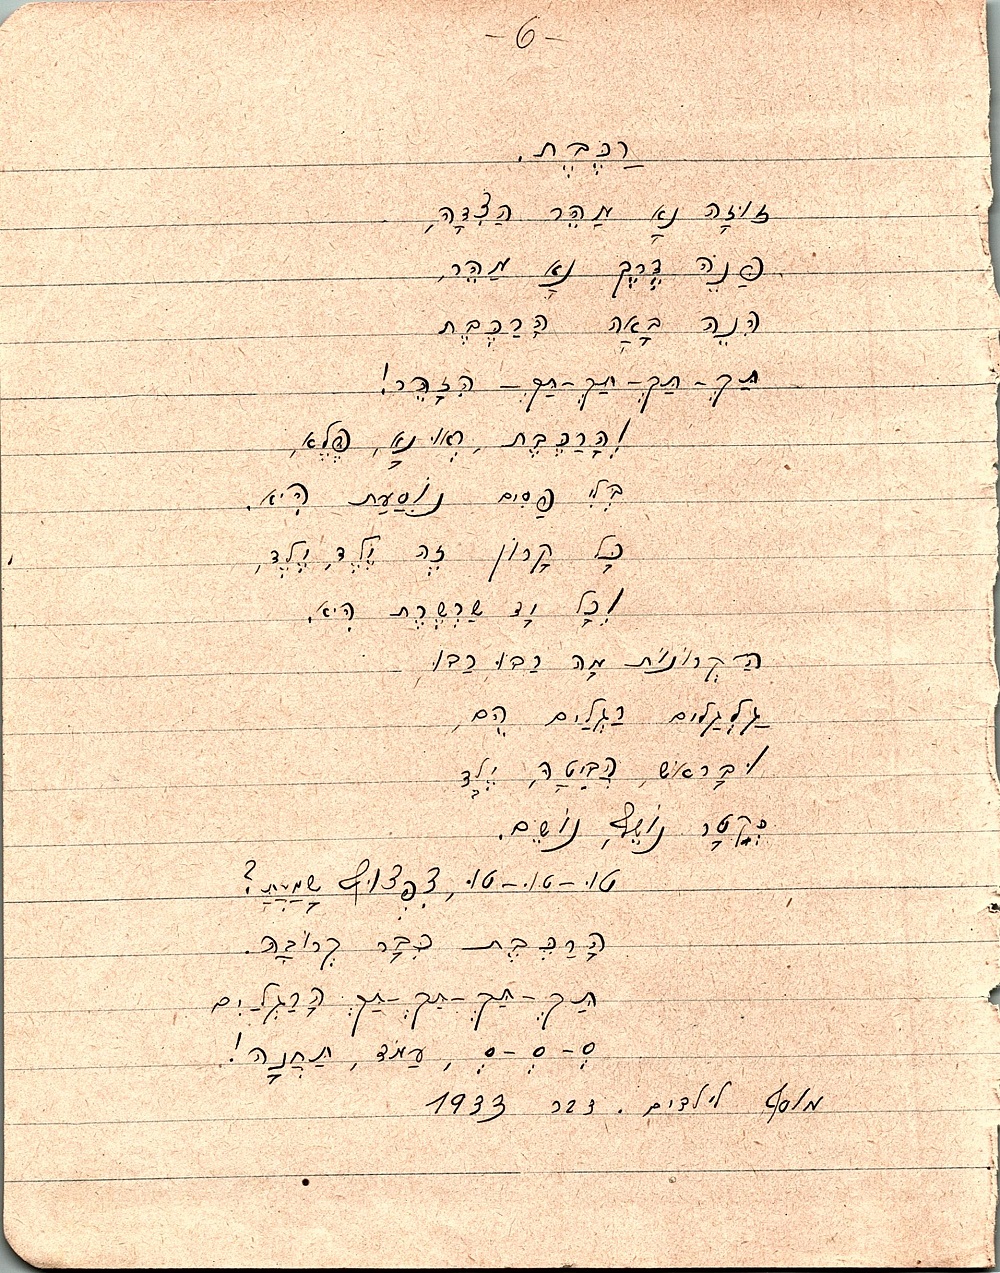 -6-
רַכֶּבֶת.
זוּזָה נָא מַהֵר הַצִּדָה,
פַּנֵה דֶרֶךְ נָא מַהֵר,
הִנֵה בָּאָה הָרַכֶּבֶת
תַּקְ-תַּקְ-תַּקְ-תַּקְ- הִזָהֵר!
וְהָרַכֶּבֶת, רְאוּ נָא, פֶּלֶא,
בְּלִי פַּסִים נוֹסַעַת הִיא.
כָּל קָרוֹן זֶה יֶלֶד, יֶלֶד,
וְכָל יָד שַׁרְשֶׁרֶת הִיא.
הַקְרוֹנוֹת מָה רַבּוּ, רַבּוּ,
גַלְגַלִים רַגְלַיִם הֵם,
וּבָרֹאשׁ, הַבִּיטָה, יֶלֶד
כְּקַטָר נוֹשֵׁף, נוֹשֵׁם.
טוּ-טוּ-טוּ, צִפְצוּף שָׁמַעְתָּ?
הָרַכֶּבֶת כְּבָר קְרוֹבָה.
תַּקְ-תַּקְ-תַּקְ-תַּקְ הָרַגְלַיִם
סְ-סְ-סְ, עֲמֹד, תַּחֲנָה!
מוסף לילדים. דבר 1933